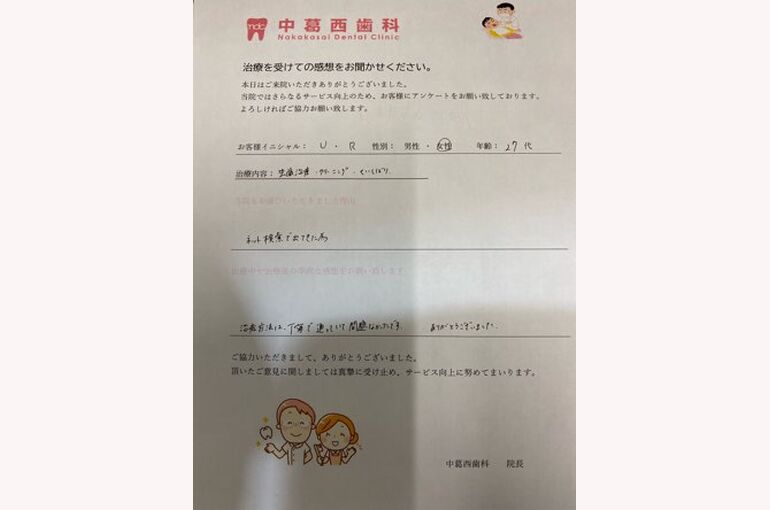 ndc
中葛西歯科
Nakakasai Dental Clinic
治療を受けての感想をお聞かせください。
本日はご来院いただきありがとうございました。
当院ではさらなるサービス向上のため、お客様にアンケートをお願い致しております。
よろしければご協力お願い致します。
お客様イニシャル： U ・ R 性別： 男性 ・ 女性 年齢： 27 代
治療内容： 虫歯治療・クリーニング・くいしばり
当院をお選びいただきました理由
ネット検索で出てきた為
治療中や治療後の率直な感想をお願い致します
治療方法は、丁寧で通っていて問題なかったです。 ありがとうございました。
ご協力いただきまして、ありがとうございました。
頂いたご意見に関しましては真摯に受け止め、サービス向上に努めてまいります。
中葛西歯科 院長